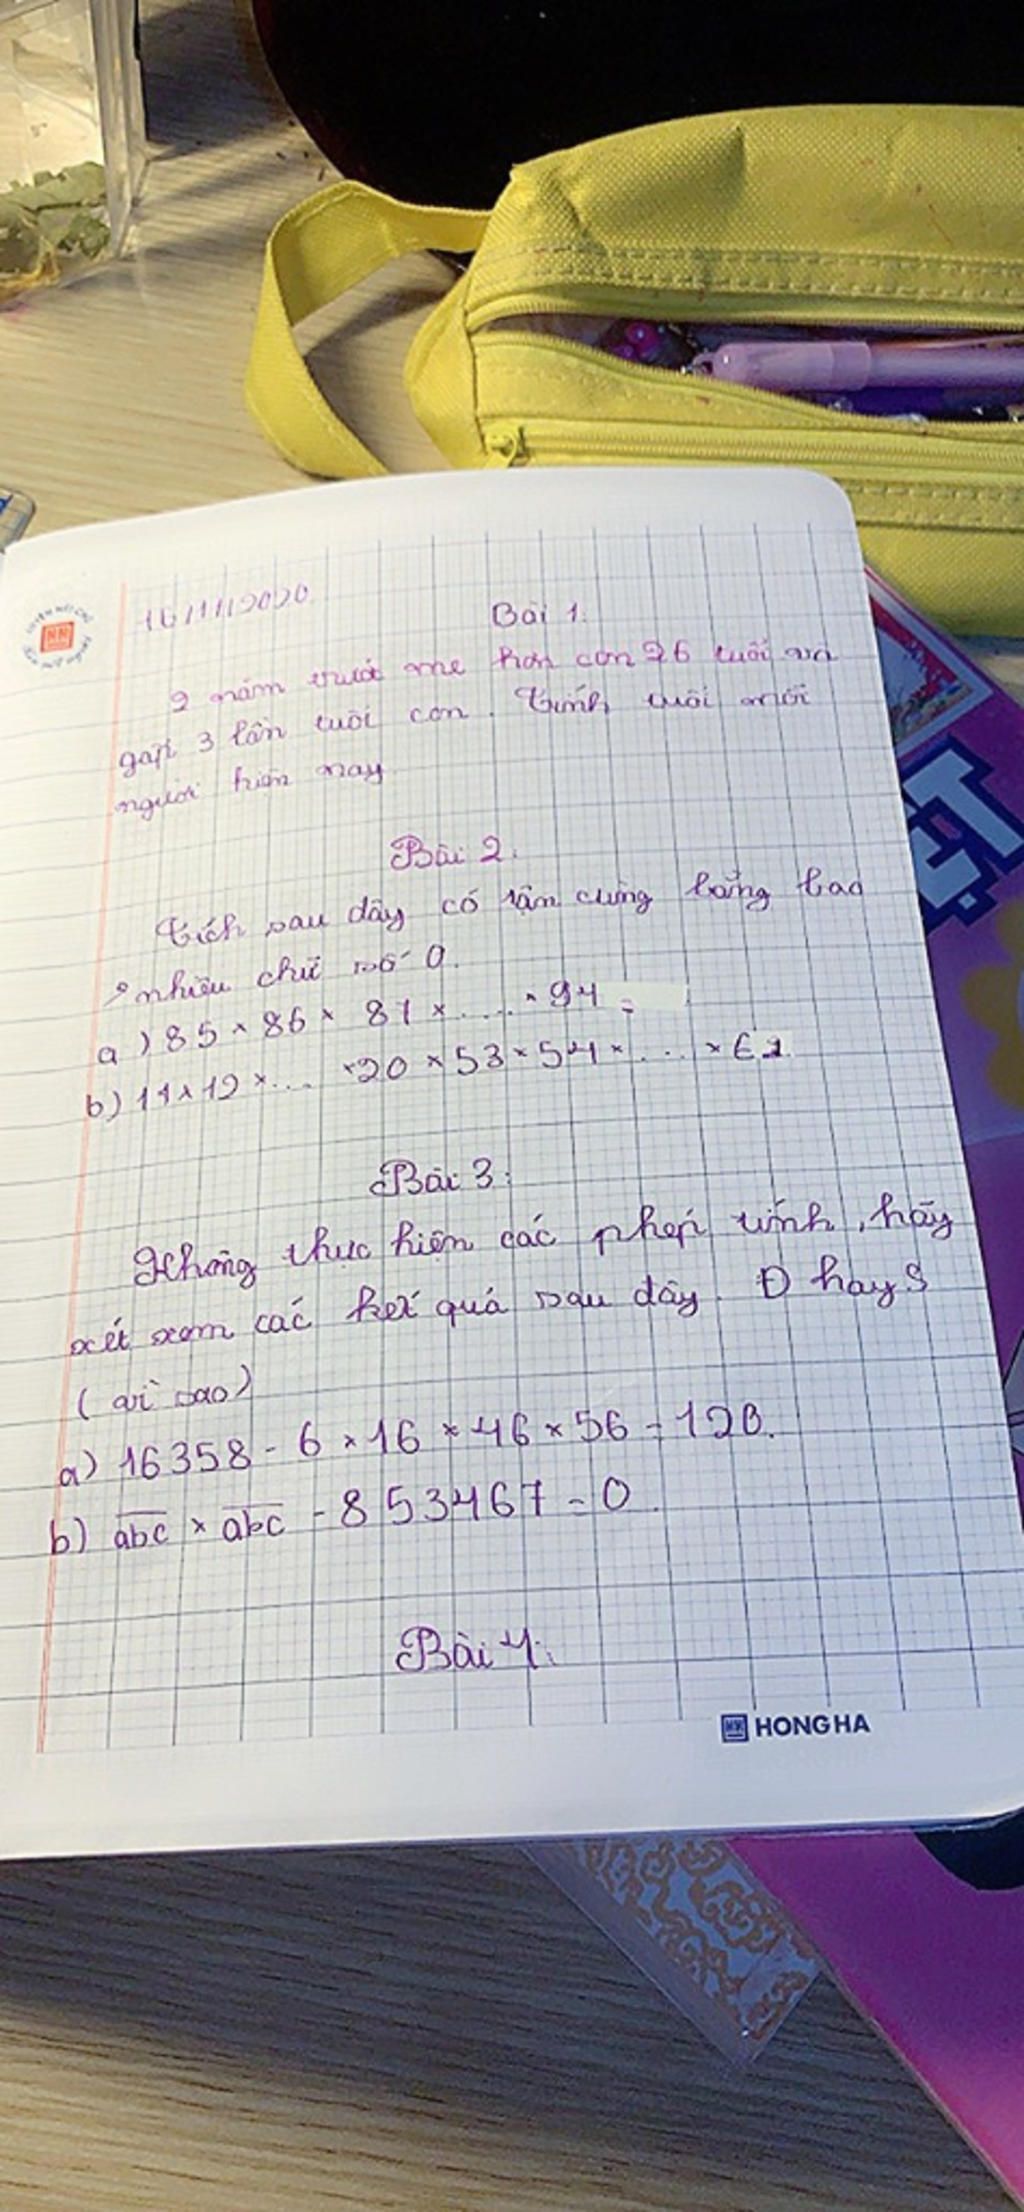 16/11/2020
Bài 1.
2 năm trước mẹ hơn con 26 tuổi và
gấp 3 lần tuổi con. Tính tuổi mỗi
người hiện nay
Bài 2.
Tích sau đây có tận cùng bằng bao
nhiêu chữ số 0.
a) 85 × 86 × 87 × .... × 94 =
b) 11 × 12 × ... × 20 × 53 × 54 × ... × 62
Bài 3:
Không thực hiện các phép tính, hãy
xét xem các kết quả sau đây. Đ hay S
(vì sao)
a) 16358 - 6 × 16 × 46 × 56 = 120.
b) abc × abc - 853467 = 0.
Bài 4:
HONG HA